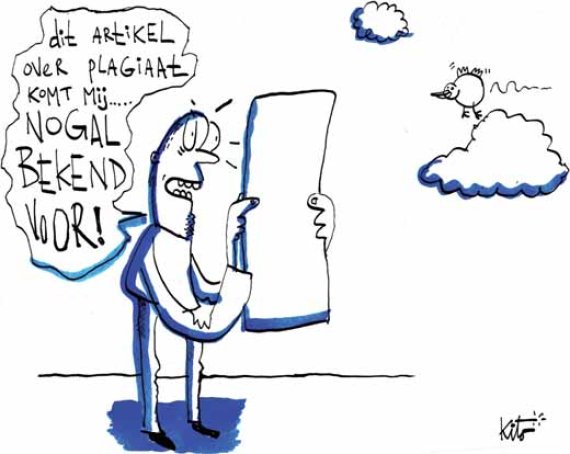 dit ARTIKEL
OVER PLAGIAAT
KOMT Mij.....
NOGAL
BEKEND
VOOR!
Kito